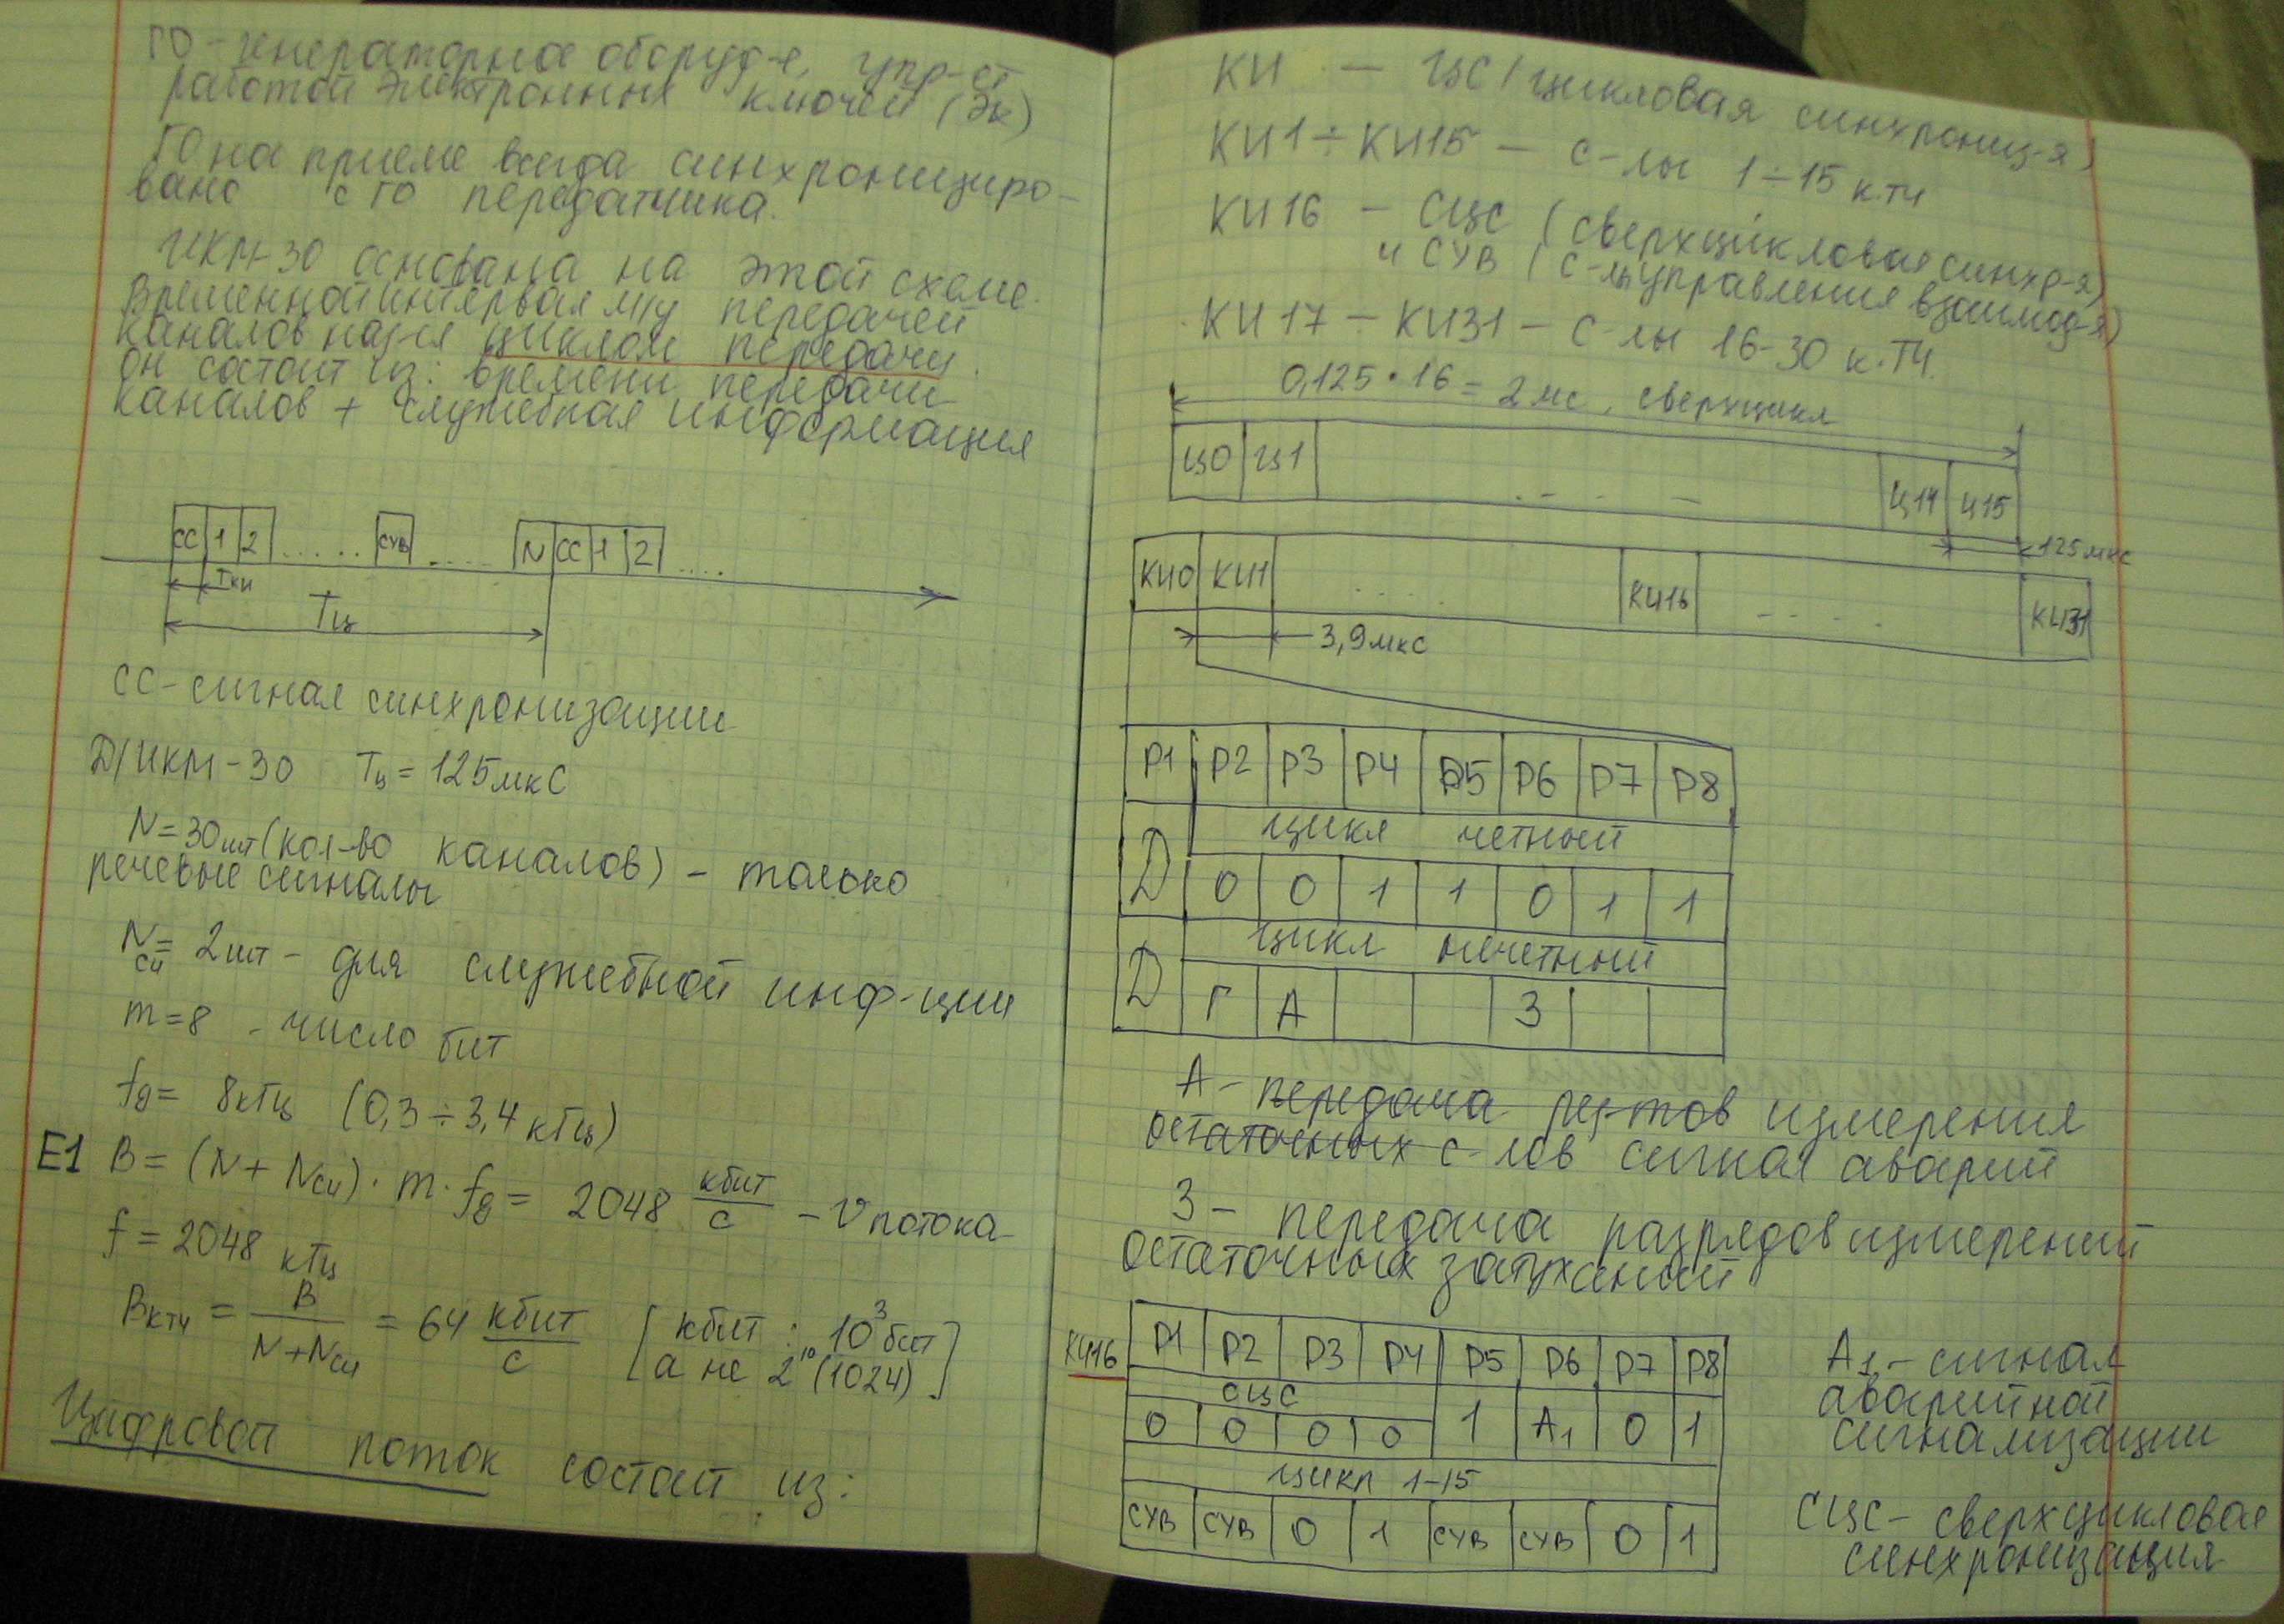 ГО - генераторное оборуд-е, упр-ет
работой электронных ключей (Эк)
ГО на приеме всегда синхронизиро-
вано с ГО передатчика.
ИКМ-30 основана на этой схеме.
Временной интервал м/у передачей
каналов наз-ся циклом передачи.
он состоит из: времени передачи
каналов + служебная информация
СС 1 2 ..... СУВ .... N СС 1 2 ....
Tки
Tц
СС - сигнал синхронизации
Д/ИКМ-30 Tц = 125мкс
N=30шт (кол-во каналов) - только
речевые сигналы
Nси = 2шт - для служебной инф-ции
m=8 - число бит
fд = 8кГц (0,3÷3,4 кГц)
E1 B = (N + Nси) · m · fд = 2048 кбит/с - V потока
f = 2048 кГц
Bктч = B/(N+Nси) = 64 кбит/с [кбит : 10³ бит
а не 2¹⁰ (1024)]
Цифровой поток состоит из:
КИ - ЦС (цикловая синхрониз-я)
КИ1 ÷ КИ15 - с-лы 1÷15 кТЧ
КИ16 - СЦС (сверхцикловая синхр-я)
и СУВ (с-лы управления взаимод-я)
КИ17 - КИ31 - с-лы 16-30 к.ТЧ.
0,125 · 16 = 2мс, сверхцикл
Ц0 Ц1 .... Ц14 Ц15
125мкс
КИ0 КИ1 ..... КИ16 ..... КИ31
3,9мкс
P1 P2 P3 P4 P5 P6 P7 P8
цикл четный
Д 0 0 1 1 0 1 1
цикл нечетный
Д Г А 3
А - передача рез-тов измерения
остаточных с-лов сигнал аварии
3 - передача разрядов измерений
остаточных затуханий
КИ16 P1 P2 P3 P4 P5 P6 P7 P8
СЦС
0 0 0 0 1 А₁ 0 1
цикл 1-15
СУВ СУВ 0 1 СУВ СУВ 0 1
А₁ - сигнал
аварийной
сигнализации
СЦС - сверхцикловая
синхронизация